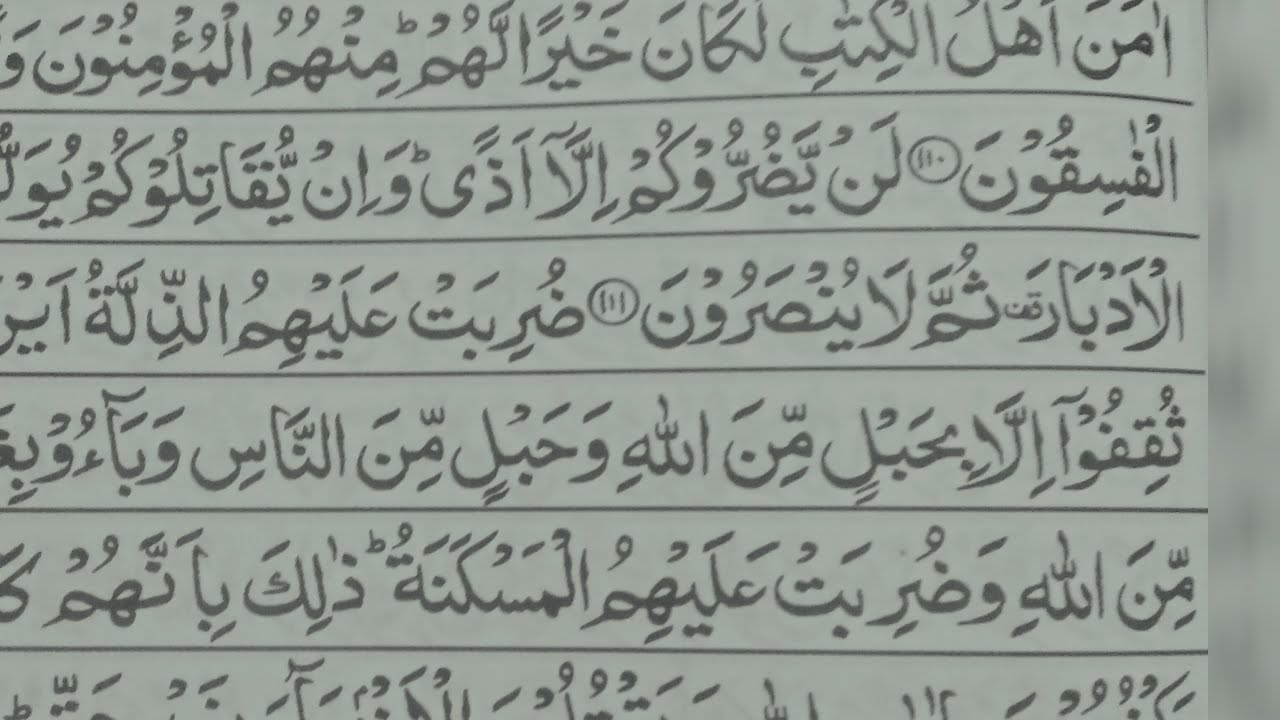 اٰمَنَ اَهْلُ الْكِتٰبِ لَكَانَ خَيْرًا لَّهُمْ ؕ مِنْهُمُ الْمُؤْمِنُوْنَ
الْفٰسِقُوْنَ ﴿۱۱۰﴾ لَنْ يَّضُرُّوْكُمْ اِلَّاۤ اَذًى ؕ وَاِنْ يُّقَاتِلُوْكُمْ
الْاَدْبَارَ ثُمَّ لَا يُنْصَرُوْنَ ﴿۱۱۱﴾ ضُرِبَتْ عَلَيْهِمُ الذِّلَّةُ
ثُقِفُوْۤا اِلَّا بِحَبْلٍ مِّنَ اللّٰهِ وَحَبْلٍ مِّنَ النَّاسِ وَبَآءُوْ
مِّنَ اللّٰهِ وَضُرِبَتْ عَلَيْهِمُ الْمَسْكَنَةُ ؕ ذٰلِكَ بِاَنَّهُمْ